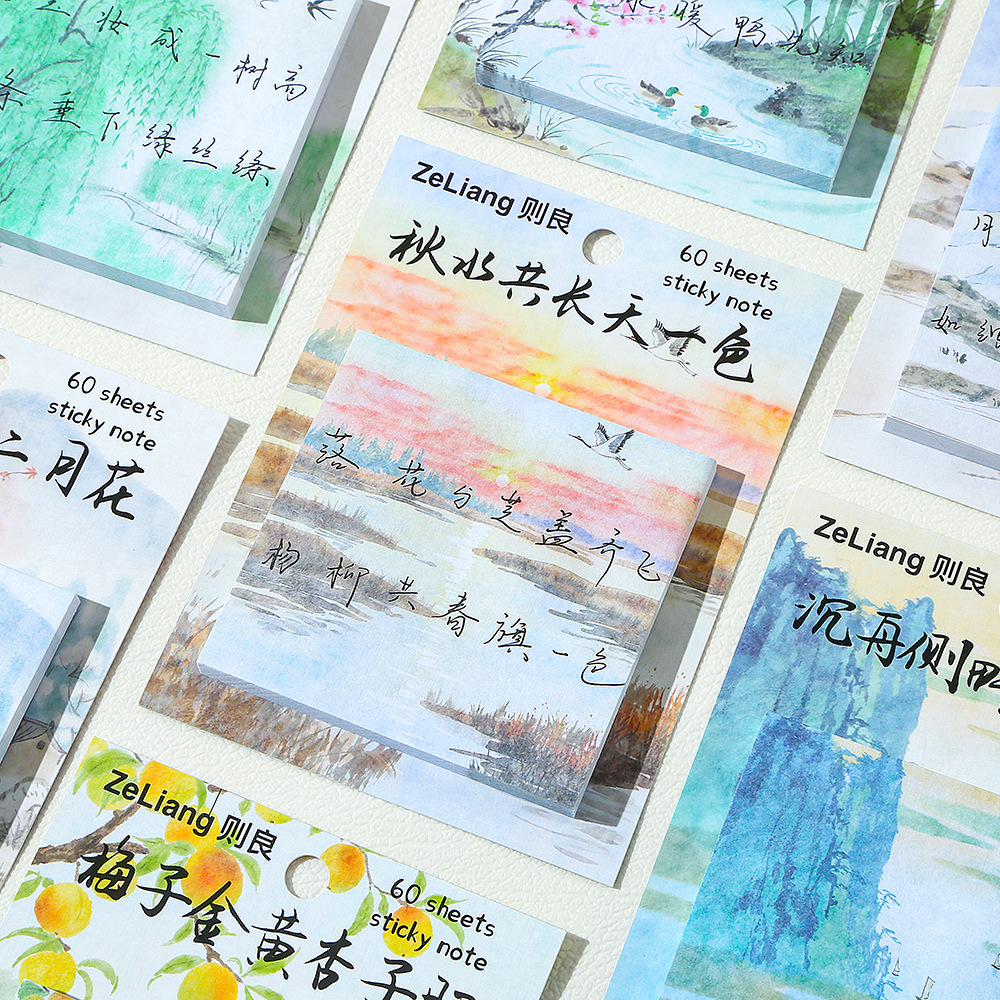 妆成一树高
条垂下绿丝绦
水暖鸭先知
ZeLiang 则良
60 sheets
sticky note
秋水共长天一色
落花与芝盖齐飞
杨柳共春旗一色
60 sheets
sticky note
二月花
月
如
ZeLiang 则良
沉舟侧畔
ZeLiang 则良
60 sheets
sticky note
梅子金黄杏子